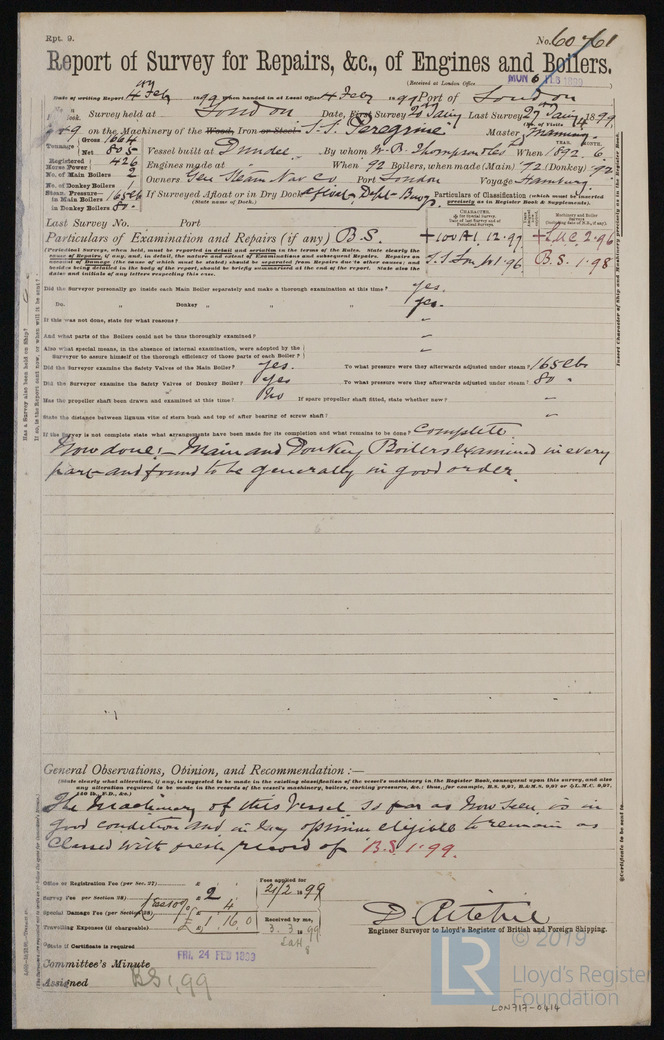 Rpt. 9.
No. 60761
Report of Survey for Repairs, &c., of Engines and Boilers.
(Received at London Office
MON 6 FEB 1899
Date of writing Report 4 Feby 1899 When handed in at Local Office 4 Feby 1899 Port of London
Survey held at London Date, First Survey Last Survey 27 Jany 1899
on the Machinery of the Wood, Iron or Steel S.S. Peregrine Master Manning
Tonnage Gross 1664 Net 805
Vessel built at Dundee By whom W. B. Thompson & Co Ld When 1892. 6.
Registered Horse Power 426
Engines made at When 92 Boilers, when made (Main) 92 (Donkey) 92
No. of Main Boilers 2
Owners Gen Steam Nav Co Port London Voyage Hamburg
No. of Donkey Boilers 1
Steam Pressure— in Main Boilers 165 lb in Donkey Boilers 80
If Surveyed Afloat or in Dry Dock Afloat Dept Buoys
(State name of Dock.)
Particulars of Classification (which must be inserted precisely as in Register Book & Supplements).
Last Survey No. Port
Particulars of Examination and Repairs (if any) B.S.
+100A1. 12.97
+LMC 2.96
S.S. Lon 1.96
B.S. 1.98
Did the Surveyor personally go inside each Main Boiler separately and make a thorough examination at this time? yes.
Do. " Donkey " " " yes.
If this was not done, state for what reasons? "
And what parts of the Boilers could not be thus thoroughly examined? "
Also what special means, in the absence of internal examination, were adopted by the Surveyor to assure himself of the thorough efficiency of those parts of each Boiler? "
Did the Surveyor examine the Safety Valves of the Main Boiler? yes. To what pressure were they afterwards adjusted under steam? 165 lbs
Did the Surveyor examine the Safety Valves of Donkey Boiler? yes To what pressure were they afterwards adjusted under steam? 80 "
Has the propeller shaft been drawn and examined at this time? No If spare propeller shaft fitted, state whether new? "
State the distance between lignum vitæ of stern bush and top of after bearing of screw shaft? "
If the Survey is not complete state what arrangements have been made for its completion and what remains to be done? Complete
Now done:— Main and Donkey Boilers Examined in every
part and found to be generally in good order.
General Observations, Opinion, and Recommendation:—
(State clearly what alteration, if any, is suggested to be made in the existing classification of the vessel's machinery in the Register Book, consequent upon this survey, and also
any alteration required to be made in the records of the vessel's machinery, boilers, working pressure, &c.: thus, for example, B.S. 9,97, B.&M.S. 9,97 or L.M.C. 9,97,
140 lb., F.D., &c.)
The Machinery of this Vessel so far as now seen is in
good condition and in my opinion eligible to remain as
Classed with fresh record of B.S. 1.99.
Office or Registration Fee (per Sec. 27)
Survey Fee (per Section 28) £ 2
Special Damage Fee (per Section 28) 4
Travelling Expenses (if chargeable) £ 1. 16. 0
Fees applied for 21/2 1899
Received by me, 3.3 1899
D. Ritchie
Engineer Surveyor to Lloyd's Register of British and Foreign Shipping.
State if Certificate is required
Committee's Minute FRI. 24 FEB 1899
Assigned BS 1,99
© 2019
LR
Lloyd's Register
Foundation
LON717-0414